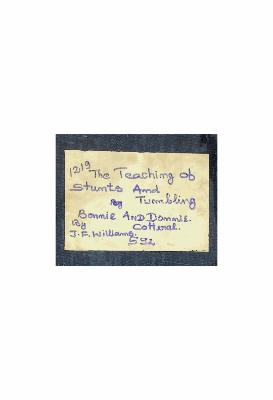 1219
The Teaching of
Stunts And
By Tumbling
Bonnie AND Donnie.
By Cotteral.
J.F. Williams.
592